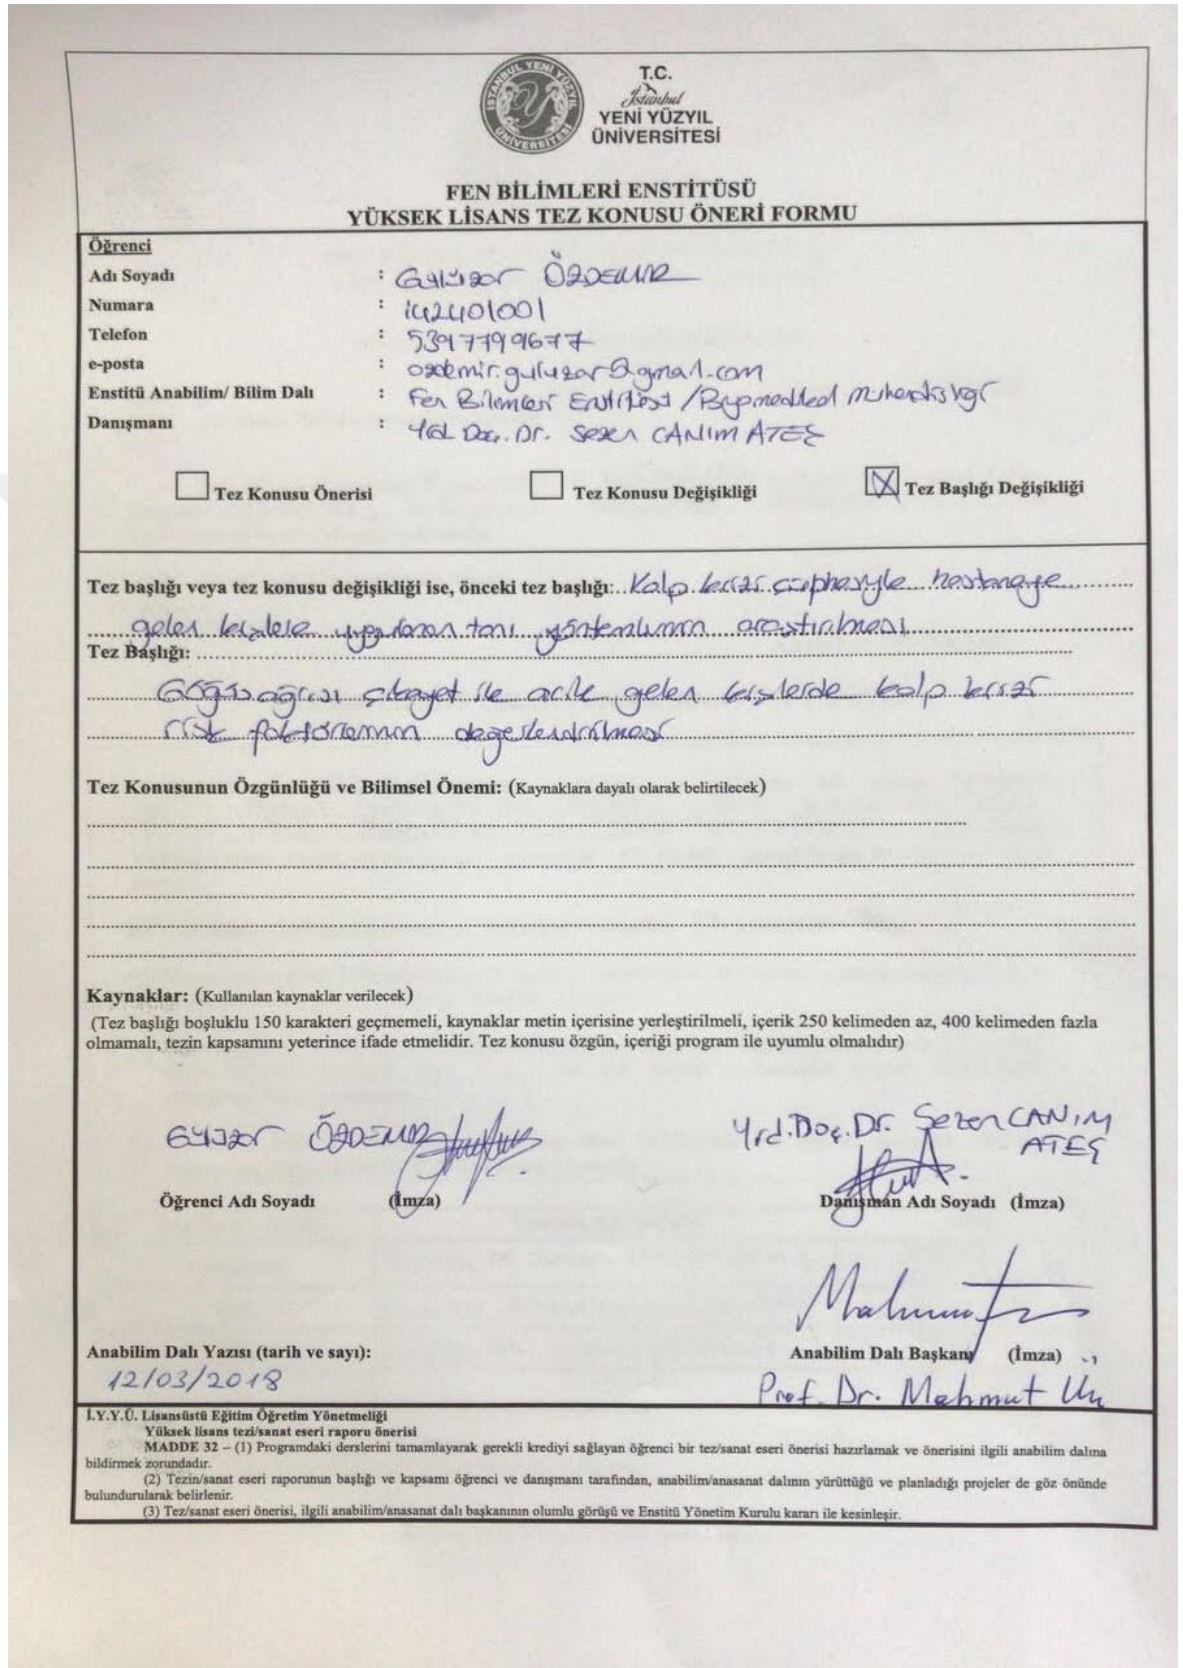 İSTANBUL YENİ YÜZYIL ÜNİVERSİTESİ
T.C.
İstanbul
YENİ YÜZYIL
ÜNİVERSİTESİ
FEN BİLİMLERİ ENSTİTÜSÜ
YÜKSEK LİSANS TEZ KONUSU ÖNERİ FORMU
Öğrenci
Adı Soyadı : Gülüzar ÖZDEMİR
Numara : 142401001
Telefon : 5397799677
e-posta : ozdemir.guluzar@gmail.com
Enstitü Anabilim/ Bilim Dalı : Fen Bilimleri Enstitüsü / Biyomedikal Mühendisliği
Danışmanı : Yrd. Doç. Dr. Sezen CANIM ATEŞ
Tez Konusu Önerisi Tez Konusu Değişikliği X Tez Başlığı Değişikliği
Tez başlığı veya tez konusu değişikliği ise, önceki tez başlığı: Kalp krizi şüphesiyle hastaneye
gelen kişilere uygulanan tanı yöntemlerinin araştırılması
Tez Başlığı:
Göğüs ağrısı şikayet ile acile gelen kişilerde kalp krizi
risk faktörlerinin değerlendirilmesi
Tez Konusunun Özgünlüğü ve Bilimsel Önemi: (Kaynaklara dayalı olarak belirtilecek)
Kaynaklar: (Kullanılan kaynaklar verilecek)
(Tez başlığı boşluklu 150 karakteri geçmemeli, kaynaklar metin içerisine yerleştirilmeli, içerik 250 kelimeden az, 400 kelimeden fazla
olmamalı, tezin kapsamını yeterince ifade etmelidir. Tez konusu özgün, içeriği program ile uyumlu olmalıdır)
Gülüzar ÖZDEMİR
Yrd. Doç. Dr. Sezen CANIM
ATEŞ
Öğrenci Adı Soyadı (İmza)
Danışman Adı Soyadı (İmza)
Anabilim Dalı Yazısı (tarih ve sayı):
Anabilim Dalı Başkanı (İmza)
12/03/2018
Prof. Dr. Mahmut Ün
İ.Y.Y.Ü. Lisansüstü Eğitim Öğretim Yönetmeliği
Yüksek lisans tezi/sanat eseri raporu önerisi
MADDE 32 – (1) Programdaki derslerini tamamlayarak gerekli krediyi sağlayan öğrenci bir tez/sanat eseri önerisi hazırlamak ve önerisini ilgili anabilim dalına
bildirmek zorundadır.
(2) Tezin/sanat eseri raporunun başlığı ve kapsamı öğrenci ve danışmanı tarafından, anabilim/anasanat dalının yürüttüğü ve planladığı projeler de göz önünde
bulundurularak belirlenir.
(3) Tez/sanat eseri önerisi, ilgili anabilim/anasanat dalı başkanının olumlu görüşü ve Enstitü Yönetim Kurulu kararı ile kesinleşir.